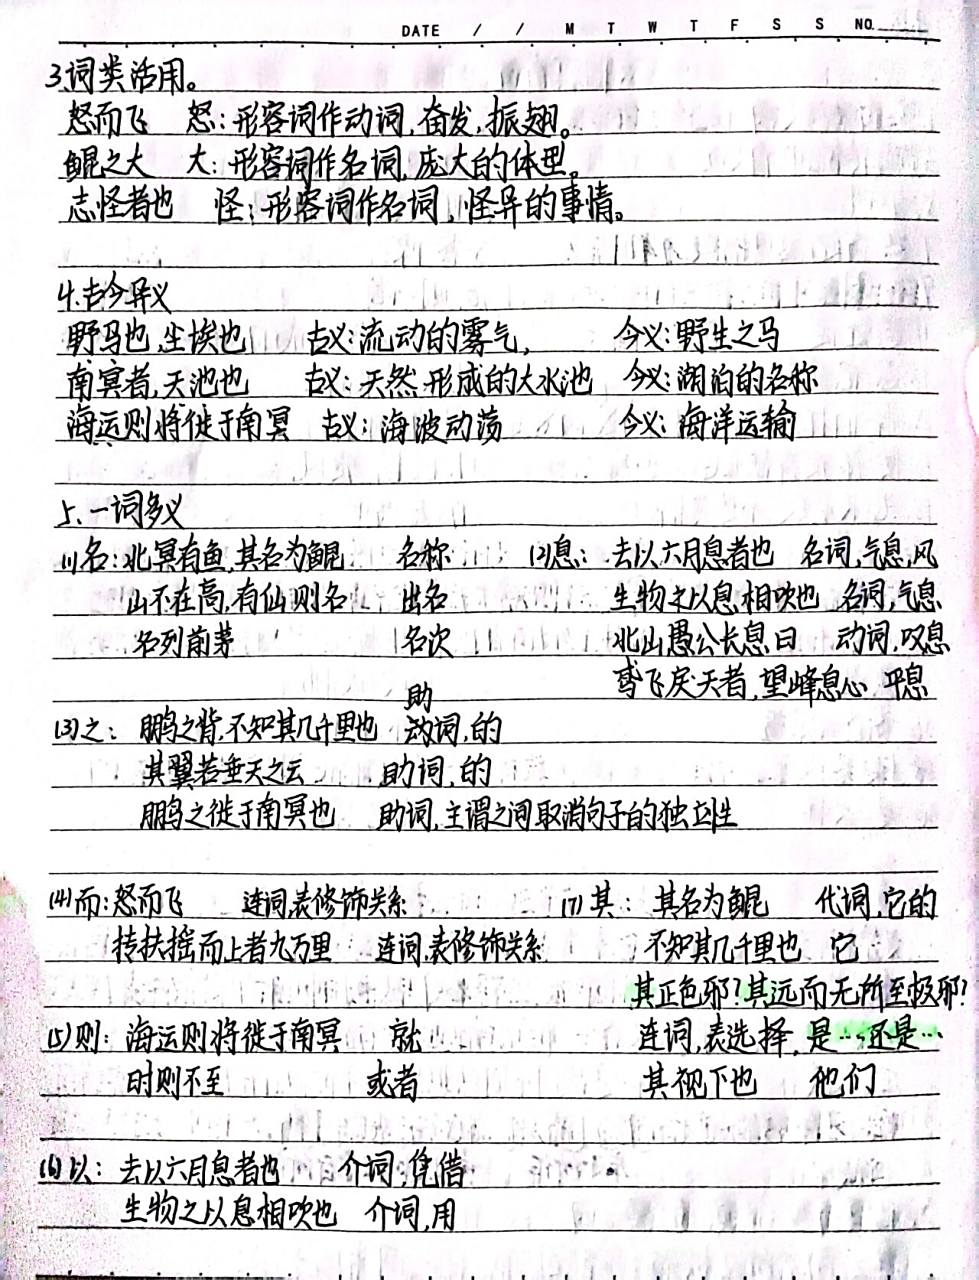 DATE / / M T W T F S S NO.
3.词类活用。
怒而飞 怒:形容词作动词,奋发,振翅。
鲲之大 大:形容词作名词,庞大的体型。
志怪者也 怪:形容词作名词,怪异的事情。
4.古今异义
野马也,尘埃也 古义:流动的雾气, 今义:野生之马
南冥者,天池也 古义:天然形成的大水池 今义:湖泊的名称
海运则将徙于南冥 古义:海波动荡 今义:海洋运输
5.一词多义
(1)名:北冥有鱼,其名为鲲 名称
山不在高,有仙则名 出名
名列前茅 名次
(2)息:去以六月息者也 名词,气息,风
生物之以息相吹也 名词,气息
北山愚公长息曰 动词,叹息
鸢飞戾天者,望峰息心 平息
(3)之:鹏之背,不知其几千里也 助词,的
其翼若垂天之云 助词,的
鹏之徙于南冥也 助词,主谓之间取消句子的独立性
(4)而:怒而飞 连词,表修饰关系
抟扶摇而上者九万里 连词,表修饰关系
(5)则:海运则将徙于南冥 就
时则不至 或者
(6)以:去以六月息者也 介词,凭借
生物之以息相吹也 介词,用
(7)其:其名为鲲 代词,它的
不知其几千里也 它
其正色邪?其远而无所至极邪?
连词,表选择,是…还是…
其视下也 他们